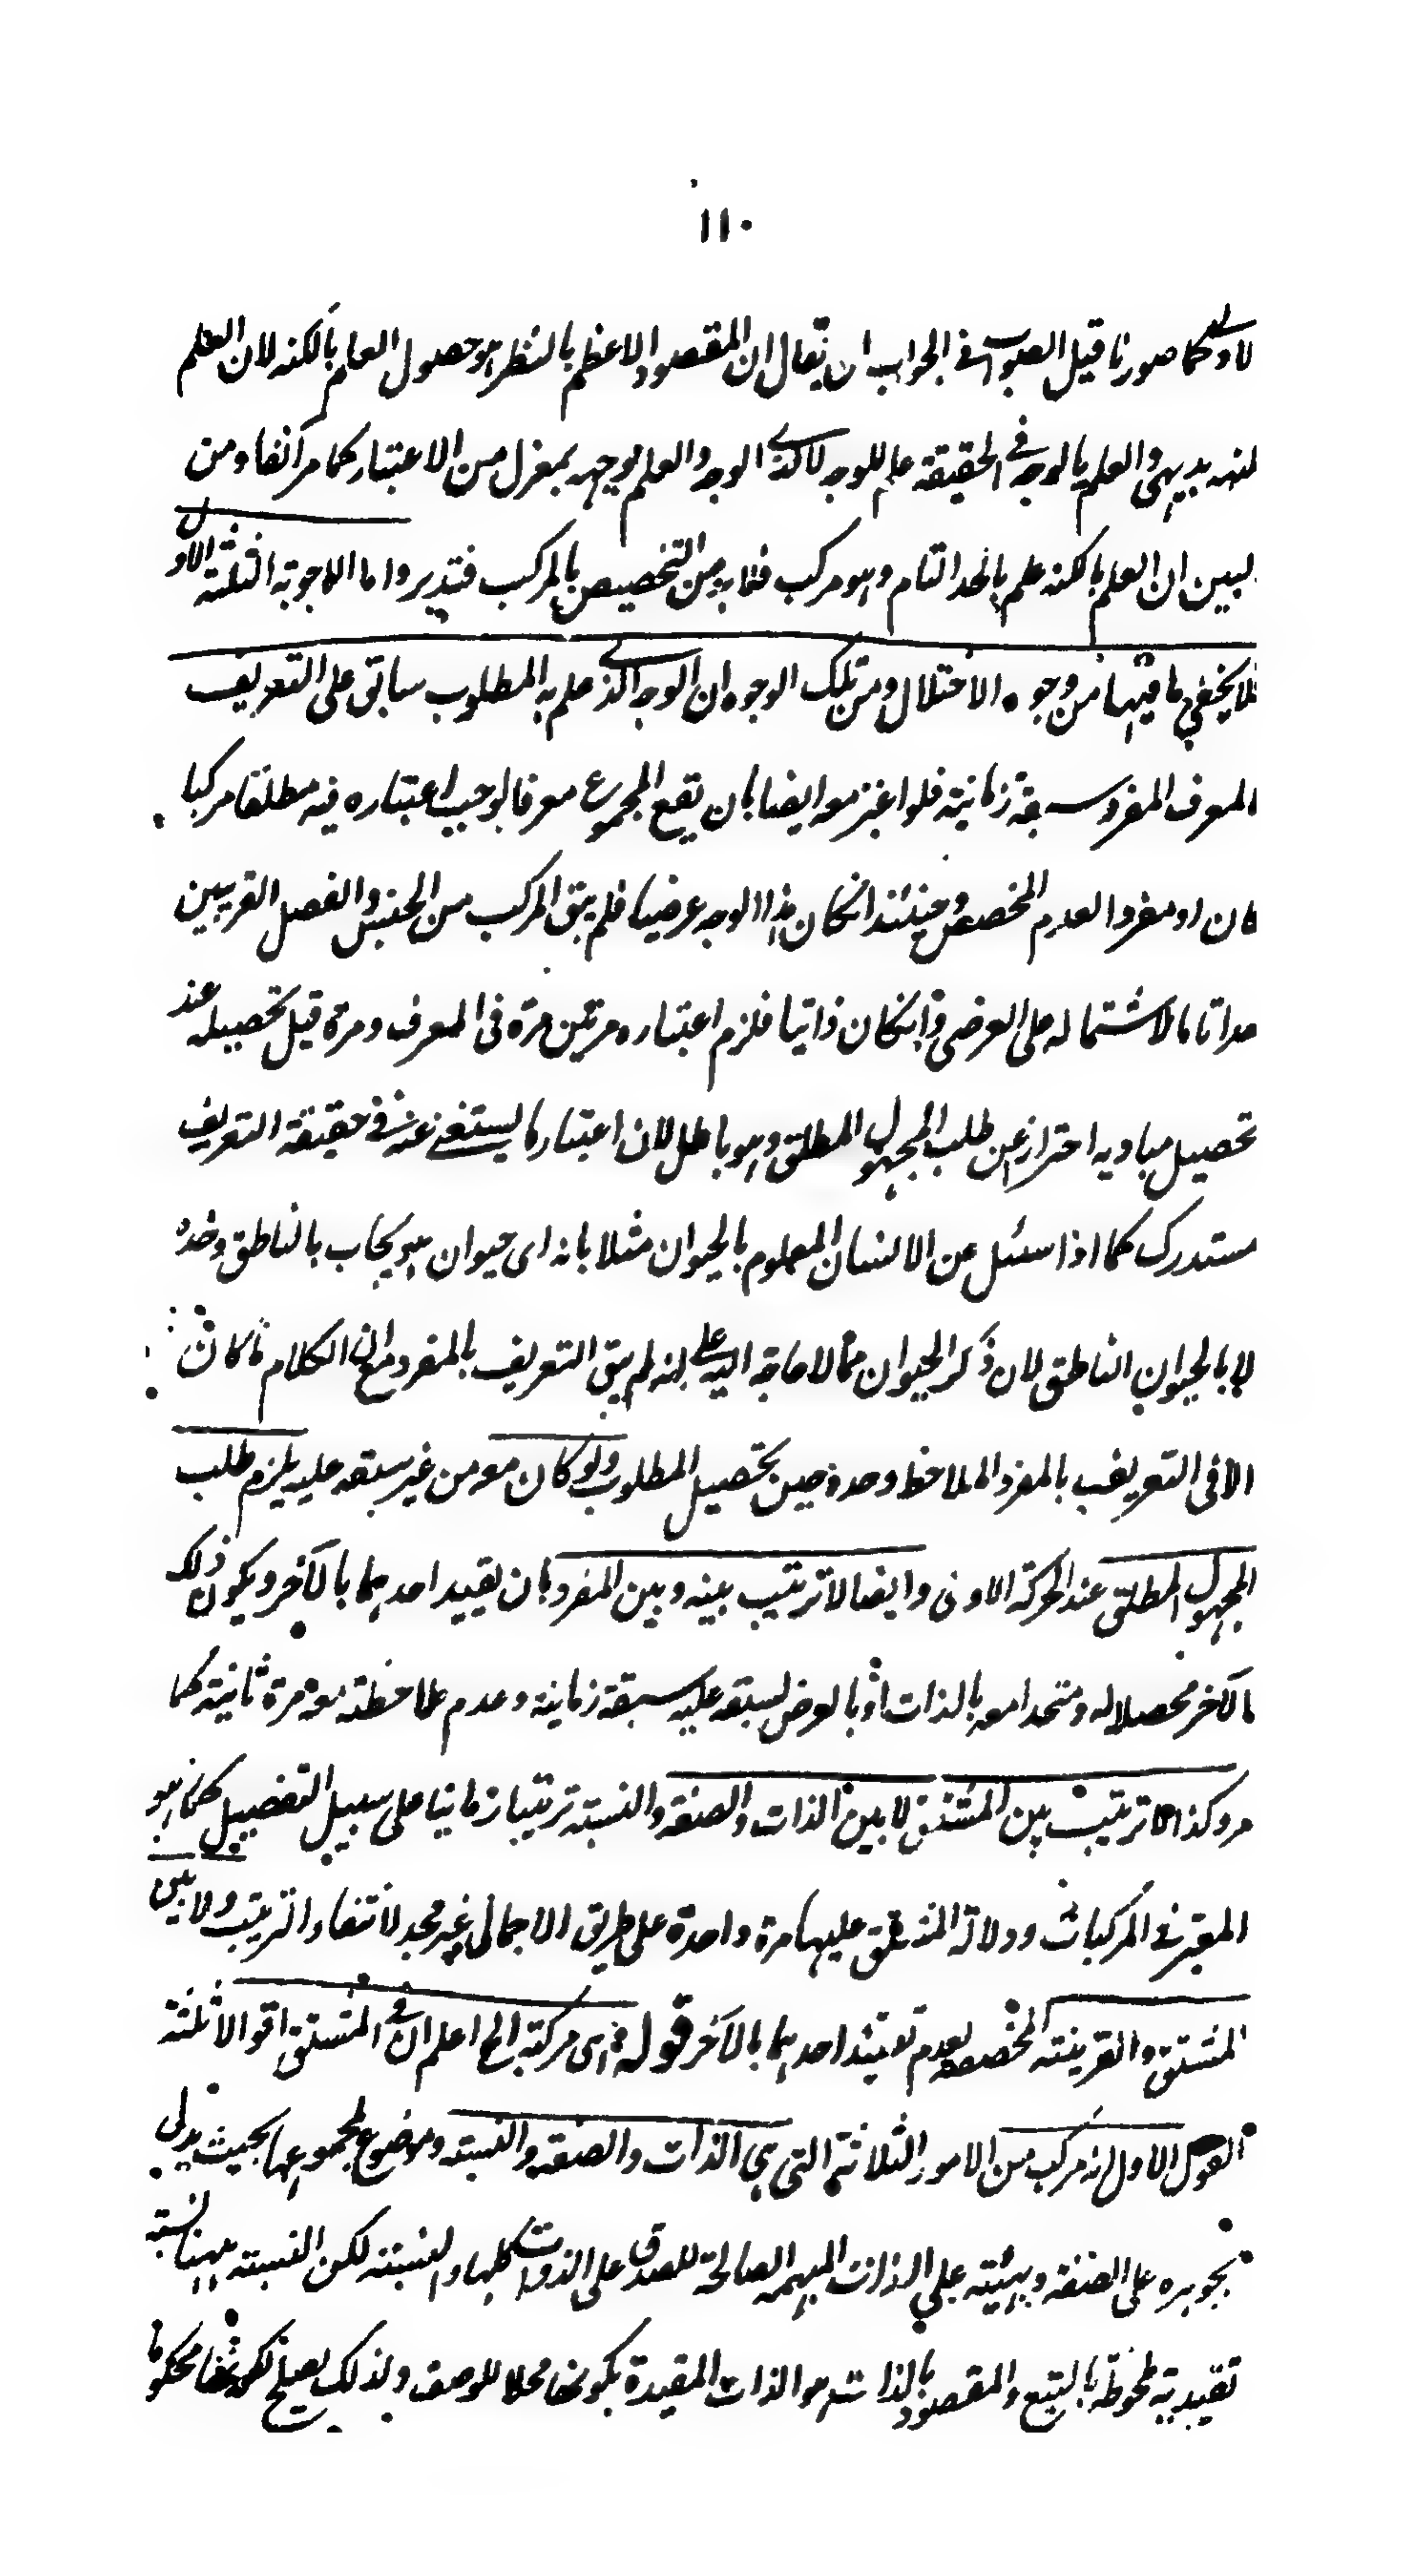 ١١٠
لاولى كما صورنا قيل الصواب في الجواب ان يقال ان المقصود الاعظم بالنظر هو حصول العلم بالكنه لان العلم
لمنه بديهي والعلم بالوجه في الحقيقة علم للوجه لا لذي الوجه والعلم بوجهه بمعزل من الاعتبار كما مر آنفا ومن
لبين ان العلم بالكنه علم بالحد التام وهو مركب فلا بد من التخصيص بالمركب فتدبر واما الاجوبة الثلثة الاول
فلا يخفى ما فيها من وجوه الاختلال ومن تلك الوجوه ان الوجه الذي علم به المطلوب سابق على التعريف
المعرف المفرد سبقة زمانية فلو اعتبر معه ايضا بان يقع المجموع معرفا لوجب اعتباره فيه مطلقا مركبا
كان او مفردا لعدم المخصص وحينئذ انكان هذا الوجه عرضيا فلم يبق المركب من الجنس والفصل القريبين
حدا تاما لاشتماله على العرضي وانكان ذاتيا فلزم اعتباره مرتين مرة في المعرف ومرة قبل تحصيله عند
تحصيل مباديه احترازا عن طلب المجهول المطلق وهو باطل لان اعتبار ما يستغنى عنه في حقيقة التعريف
مستدرك كما اذا سئل عن الانسان المعلوم بالحيوان مثلا بانه اي حيوان هو يجاب بالناطق وحده
لا بالحيوان الناطق لان ذكر الحيوان مما لا حاجة اليه على انه لم يبق التعريف بالمفرد مع ان الكلام ما كان
الا في التعريف بالمفرد الملاحظ وحده حين تحصيل المطلوب ولو كان معه من غير سبقه عليه يلزم طلب
المجهول المطلق عند الحركة الاولى وايضا لا ترتيب بينه وبين المفرد بان يقيد احدهما بالآخر ويكون ذلك
الآخر محصلا له ومتحدا معه بالذات او بالعرض لسبقه عليه سبقة زمانية وعدم ملاحظته معه مرة ثانية كما
مر وكذا لا ترتيب بين المشتق لا بين الذات والصفة والنسبة ترتيبا زمانيا على سبيل التفصيل كما هو
المعتبر في المركبات ودلالة المشتق عليها مرة واحدة على طريق الاجمال غير مجد لانتفاء الترتيب ولا بين
المشتق والقرينة المخصصة لعدم تقييد احدهما بالآخر قوله اي مركبة الخ اعلم ان في المشتق اقوالا ثلثة
القول الاول انه مركب من الامور الثلاثة التي هي الذات والصفة والنسبة وموضوع لمجموعها بحيث يدل
بجوهره على الصفة وبهيئته على الذات المبهمة الصالحة للصدق على الذوات كلها والنسبة لكن النسبة ههنا نسبة
تقييدية ملحوظة بالتبع والمقصود بالذات هو الذات المقيدة بكونها محلا للوصف ولذلك يصلح لكونها محكوما